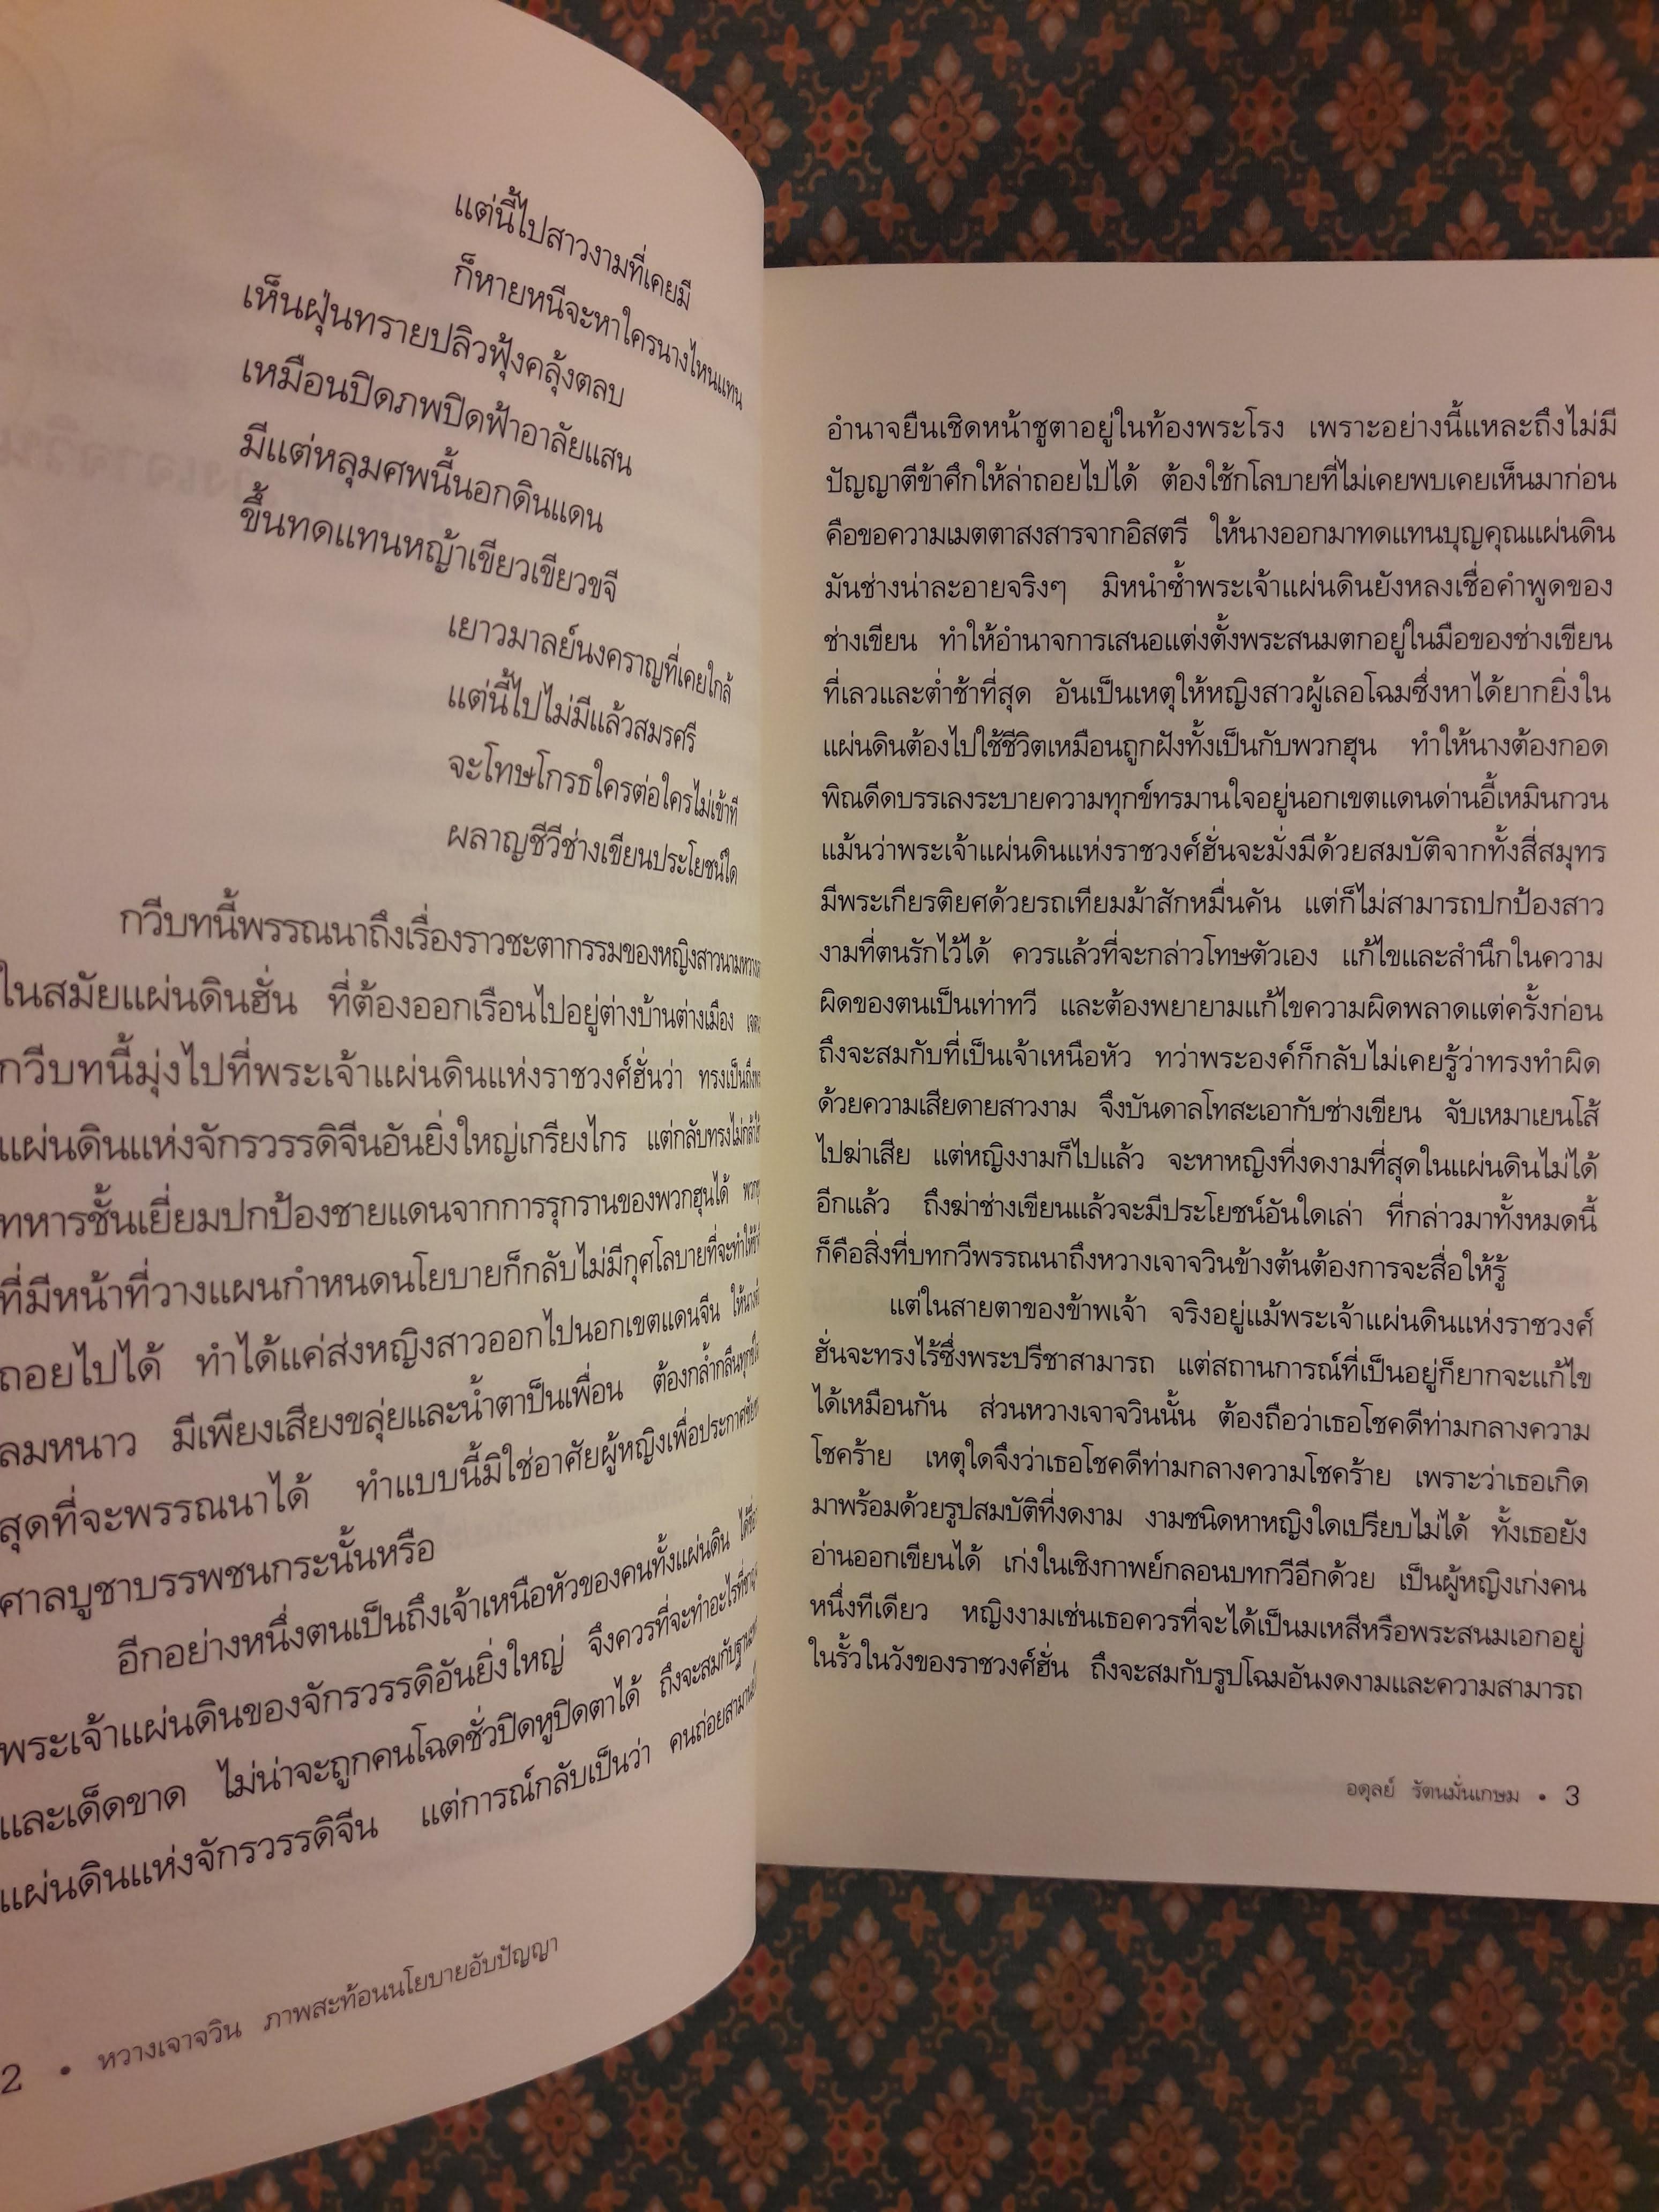 แต่นี้ไปสาวงามที่เคยมี
ก็หายหนีจะหาใครนางไหนแทน
เห็นฝุ่นทรายปลิวฟุ้งคลุ้งตลบ
เหมือนปิดภพปิดฟ้าอาลัยแสน
มีแต่หลุมศพนี้นอกดินแดน
ขึ้นทดแทนหญ้าเขียวเขียวขจี
เยาวมาลย์นงคราญที่เคยใกล้
แต่นี้ไปไม่มีแล้วสมรศรี
จะโทษโกรธใครต่อใครไม่เข้าที
ผลาญชีวีช่างเขียนประโยชน์ใด
กวีบทนี้พรรณนาถึงเรื่องราวชะตากรรมของหญิงสาวนาม
ในสมัยแผ่นดินฮั่น ที่ต้องออกเรือนไปอยู่ต่างบ้านต่างเมือง
กวีบทนี้มุ่งไปที่พระเจ้าแผ่นดินแห่งราชวงศ์ฮั่นว่า ทรงเป็นถึง
แผ่นดินแห่งจักรวรรดิจีนอันยิ่งใหญ่เกรียงไกร แต่กลับทรงไม่
ทหารชั้นเยี่ยมปกป้องชายแดนจากการรุกรานของพวกฮุนได้
ที่มีหน้าที่วางแผนกำหนดนโยบายก็กลับไม่มีกุศโลบายที่จะทำให้
ถอยไปได้ ทำได้แค่ส่งหญิงสาวออกไปนอกเขตแดนจีน
ลมหนาว มีเพียงเสียงขลุ่ยและน้ำตาป็นเพื่อน ต้องกล้ำกลืน
สุดที่จะพรรณนาได้ ทำแบบนี้มิใช่อาศัยผู้หญิงเพื่อประกาศ
ศาลบูชาบรรพชนกระนั้นหรือ
อีกอย่างหนึ่งตนเป็นถึงเจ้าเหนือหัวของคนทั้งแผ่นดิน
พระเจ้าแผ่นดินของจักรวรรดิอันยิ่งใหญ่ จึงควรที่จะทำอะไรที่
และเด็ดขาด ไม่น่าจะถูกคนโฉดชั่วปิดหูปิดตาได้ ถึงจะสมกับ
แผ่นดินแห่งจักรวรรดิจีน แต่การณ์กลับเป็นว่า คนถ่อย
2 • หวางเจาจวิน ภาพสะท้อนนโยบายอับปัญญา
อำนาจยืนเชิดหน้าชูตาอยู่ในท้องพระโรง เพราะอย่างนี้แหละถึงไม่มี
ปัญญาตีข้าศึกให้ล่าถอยไปได้ ต้องใช้กโลบายที่ไม่เคยพบเคยเห็นมาก่อน
คือขอความเมตตาสงสารจากอิสตรี ให้นางออกมาทดแทนบุญคุณแผ่นดิน
มันช่างน่าละอายจริงๆ มิหนำซ้ำพระเจ้าแผ่นดินยังหลงเชื่อคำพูดของ
ช่างเขียน ทำให้อำนาจการเสนอแต่งตั้งพระสนมตกอยู่ในมือของช่างเขียน
ที่เลวและต่ำช้าที่สุด อันเป็นเหตุให้หญิงสาวผู้เลอโฉมซึ่งหาได้ยากยิ่งใน
แผ่นดินต้องไปใช้ชีวิตเหมือนถูกฝังทั้งเป็นกับพวกฮุน ทำให้นางต้องกอด
พิณดีดบรรเลงระบายความทุกข์ทรมานใจอยู่นอกเขตแดนด่านอี้เหมินกวน
แม้นว่าพระเจ้าแผ่นดินแห่งราชวงศ์ฮั่นจะมั่งมีด้วยสมบัติจากทั้งสี่สมุทร
มีพระเกียรติยศด้วยรถเทียมม้าสักหมื่นคัน แต่ก็ไม่สามารถปกป้องสาว
งามที่ตนรักไว้ได้ ควรแล้วที่จะกล่าวโทษตัวเอง แก้ไขและสำนึกในความ
ผิดของตนเป็นเท่าทวี และต้องพยายามแก้ไขความผิดพลาดแต่ครั้งก่อน
ถึงจะสมกับที่เป็นเจ้าเหนือหัว ทว่าพระองค์ก็กลับไม่เคยรู้ว่าทรงทำผิด
ด้วยความเสียดายสาวงาม จึงบันดาลโทสะเอากับช่างเขียน จับเหมาเยนโส้
ไปฆ่าเสีย แต่หญิงงามก็ไปแล้ว จะหาหญิงที่งดงามที่สุดในแผ่นดินไม่ได้
อีกแล้ว ถึงฆ่าช่างเขียนแล้วจะมีประโยชน์อันใดเล่า ที่กล่าวมาทั้งหมดนี้
ก็คือสิ่งที่บทกวีพรรณนาถึงหวางเจาจวินข้างต้นต้องการจะสื่อให้รู้
แต่ในสายตาของข้าพเจ้า จริงอยู่แม้พระเจ้าแผ่นดินแห่งราชวงศ์
ฮั่นจะทรงไร้ซึ่งพระปรีชาสามารถ แต่สถานการณ์ที่เป็นอยู่ก็ยากจะแก้ไข
ได้เหมือนกัน ส่วนหวางเจาจวินนั้น ต้องถือว่าเธอโชคดีท่ามกลางความ
โชคร้าย เหตุใดจึงว่าเธอโชคดีท่ามกลางความโชคร้าย เพราะว่าเธอเกิด
มาพร้อมด้วยรูปสมบัติที่งดงาม งามชนิดหาหญิงใดเปรียบไม่ได้ ทั้งเธอยัง
อ่านออกเขียนได้ เก่งในเชิงกาพย์กลอนบทกวีอีกด้วย เป็นผู้หญิงเก่งคน
หนึ่งทีเดียว หญิงงามเช่นเธอควรที่จะได้เป็นมเหสีหรือพระสนมเอกอยู่
ในรั้วในวังของราชวงศ์ฮั่น ถึงจะสมกับรูปโฉมอันงดงามและความสามารถ
อดุลย์ รัตนมั่นเกษม • 3